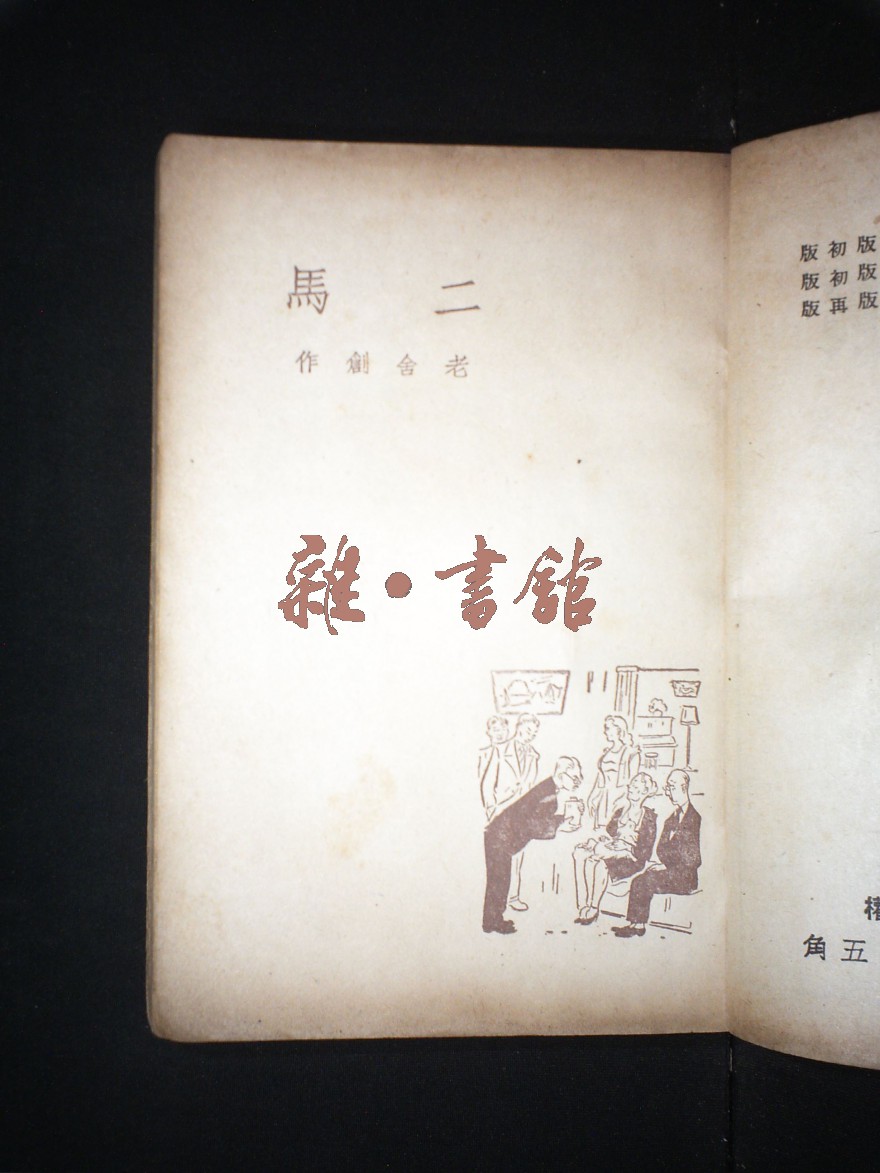 二馬
老舍創作
雜•書館
版初版
版初版
版再版
五角